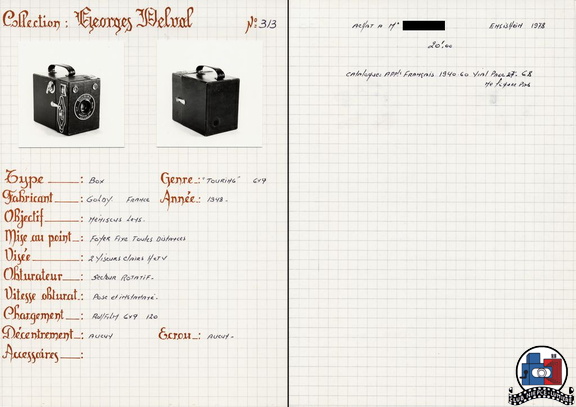 Collection : Georges Delval N° 313
Type : Box Genre : "TOURING" 6x9
Fabricant : GOLDY. FRANCE Année : 1948.
Objectif : MÉNISCUS LENS.
Mise au point : FOYER FIXE TOUTES DISTANCES
Visée : 2 VISEURS CLAIRS H et V
Obturateur : SECTEUR ROTATIF.
Vitesse obturat. : POSE et INSTANTANÉ.
Chargement : ROLLFILM 6x9 120
Décentrement : AUCUN Ecrou : AUCUN.
Accessoires :
ACHAT A Mr ENSISHEIM 1978
20f.00
CATALOGUES APPts FRANÇAIS 1940-60 VIAL PAGE